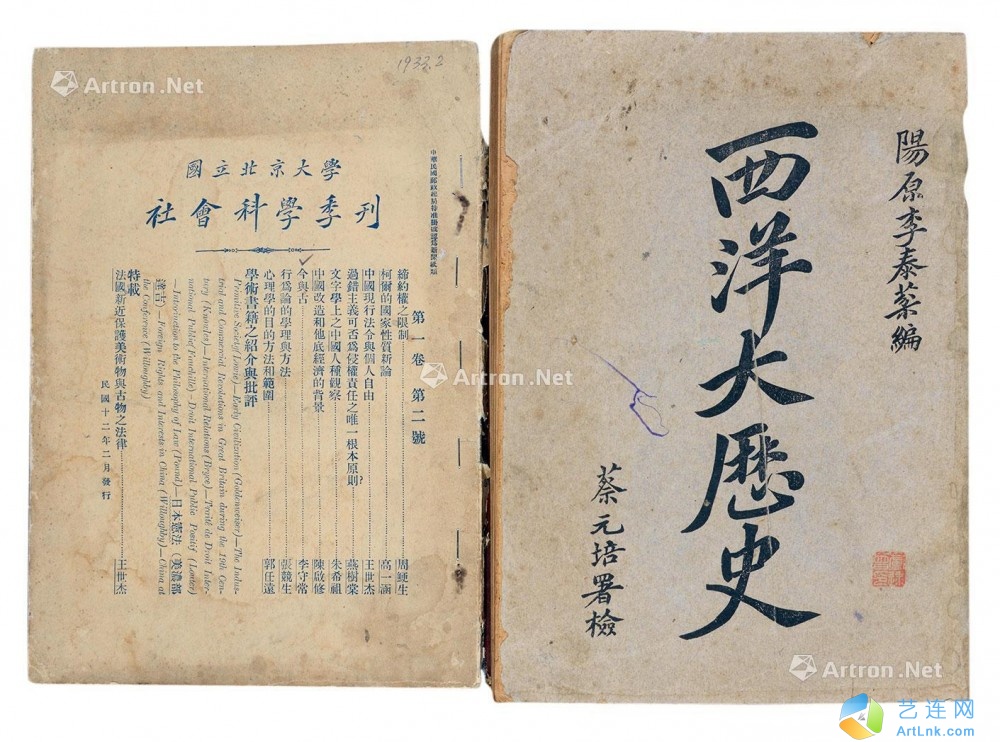 Artron.Net
1933.2
國立北京大學
社會科學季刊
中華民國郵政
第一卷 第二號
締約權之限制 周鯁生
柯爾的國家性質新論 高一涵
中國現行法令與個人自由 王世杰
過錯主義可否為侵權責任之唯一根本原則? 燕樹棠
文字學上之中國人種觀察 朱希祖
中國改造和他底經濟的背景 陳啟修
今與古 李守常
行為論的學理與方法 張競生
心理學的目的方法和範圍 郭任遠
學術書籍之紹介與批評
Primitive Society (Lowie)—Early Civilization (Goldenweiser)—The Indus-
trial and Commercial Revolutions in Great Britain during the 19th Cen-
tury (Knowles)—International Relations (Bryce)—Traité de Droit Inter-
national Public (Fauchille)—Droit International Public Positif (Louter)
—Introduction to the Philosophy of Law (Pound)—日本憲法(美濃部
達吉)—Foreign Rights and Interests in China (Willoughby)—China at
the Conference (Willoughby)
特載
法國新近保護美術物與古物之法律 王世杰
民國十二年二月發行
Artron.Net
Artron.Net
陽原李泰棻編
西洋大歷史
蔡元培署檢
Artron.Net
艺连网
ArtLnk.com